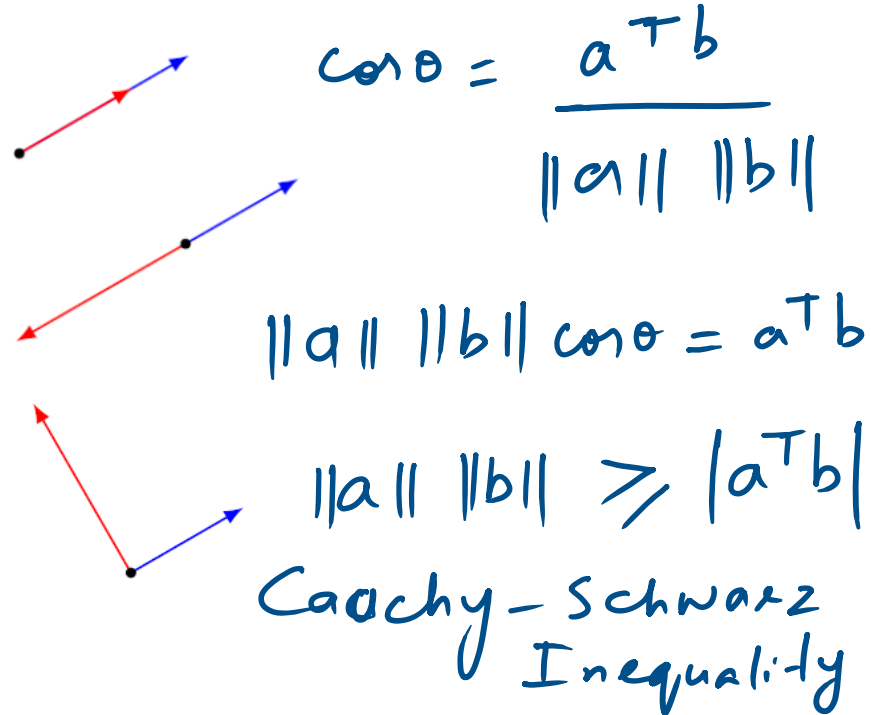 cos θ = aᵀb / ‖a‖ ‖b‖
‖a‖ ‖b‖ cos θ = aᵀb
‖a‖ ‖b‖ ⩾ |aᵀb|
Cauchy - Schwarz
Inequality